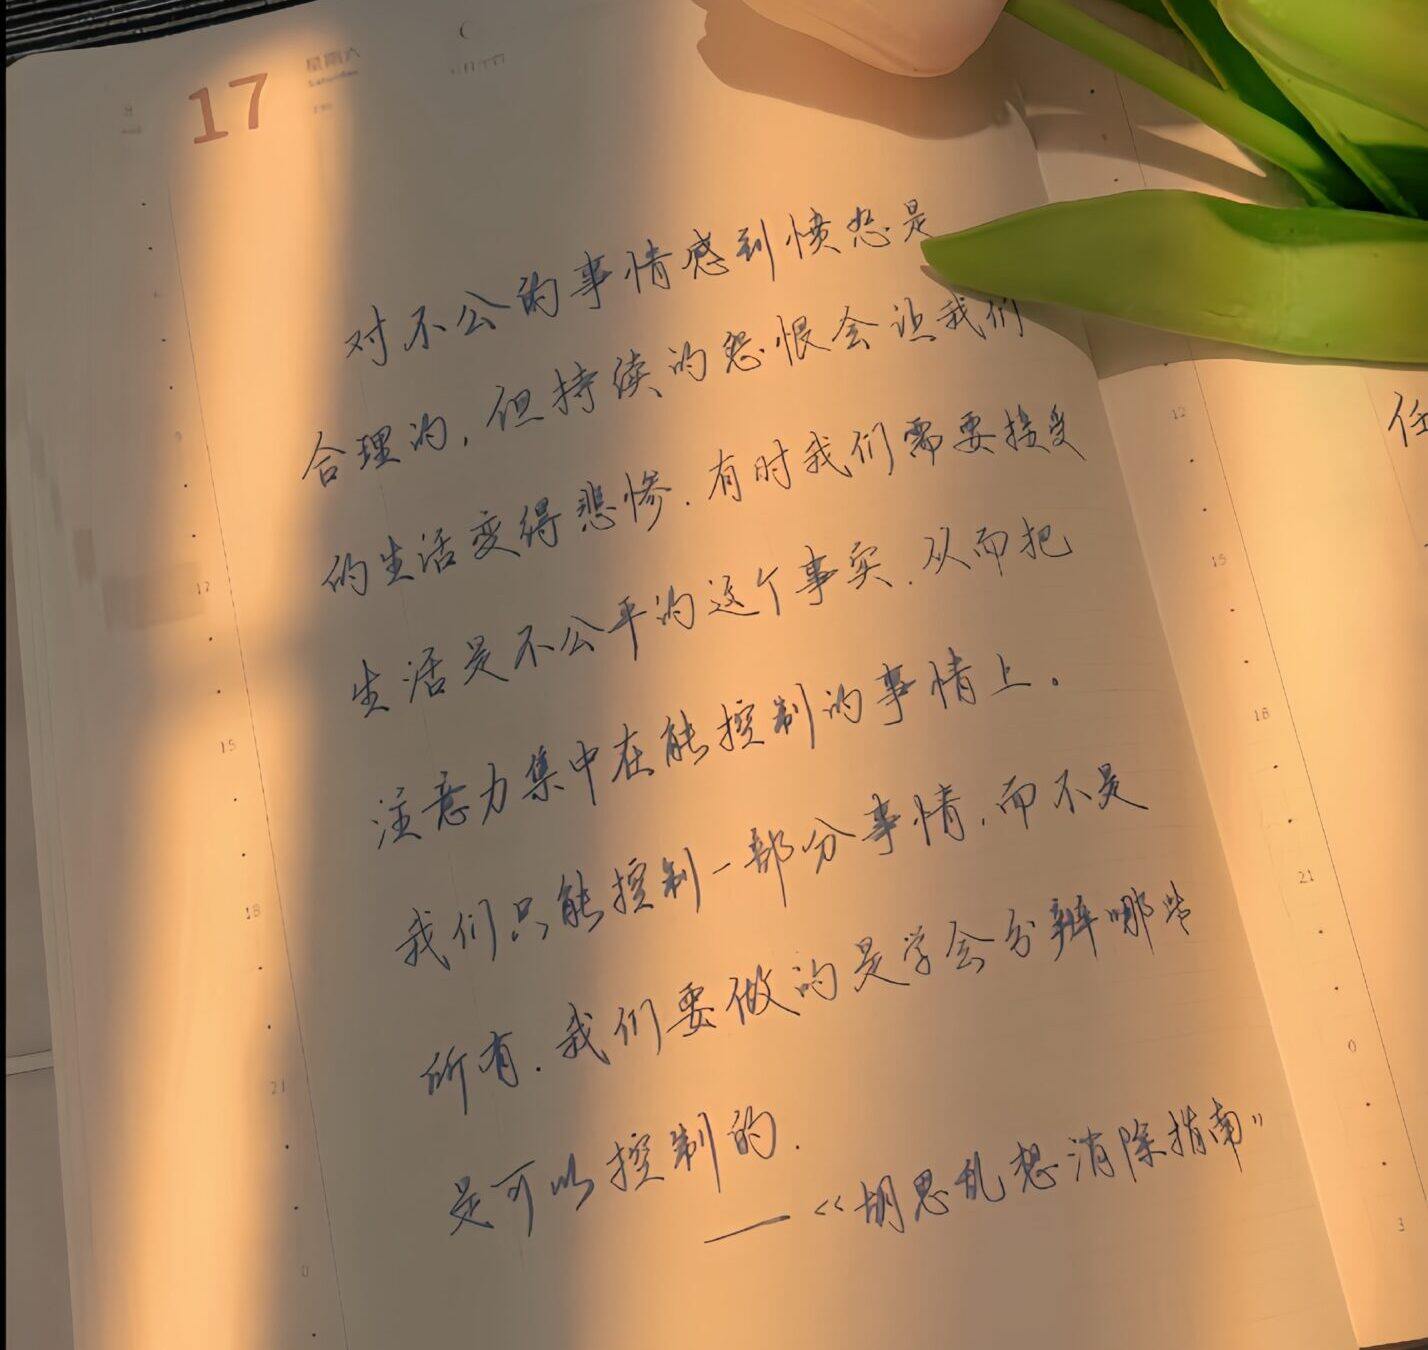 17
星期六
Saturday
对不公的事情感到愤怒是
合理的,但持续的怨恨会让我们
的生活变得悲惨.有时我们需要接受
生活是不公平的这个事实.从而把
注意力集中在能控制的事情上。
我们只能控制一部分事情,而不是
所有.我们要做的是学会分辨哪些
是可以控制的.
——《胡思乱想消除指南》
12
15
18
21
0
任
12
15
18
21
0
3